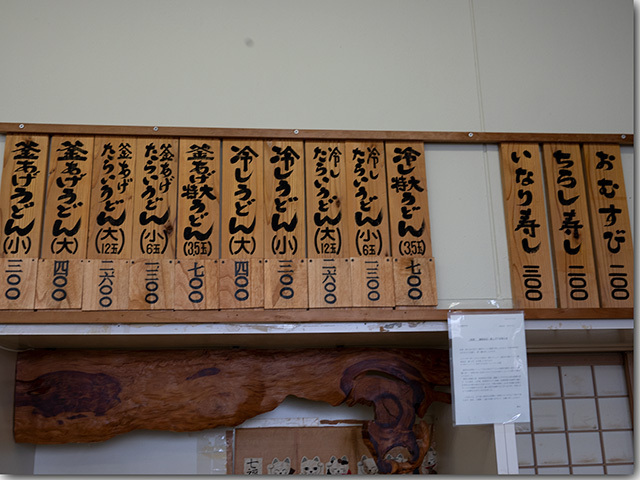 おむすび 二〇〇
ちらし寿し 二〇〇
いなり寿し 三〇〇
冷し特大うどん(3,5玉) 七〇〇
冷したらいうどん(小6玉) 一三〇〇
冷したらいうどん(大12玉) 二六〇〇
冷しうどん(小) 三〇〇
冷しうどん(大) 四〇〇
釜あげ特大うどん(3,5玉) 七〇〇
釜あげたらいうどん(小6玉) 一三〇〇
釜あげたらいうどん(大12玉) 二六〇〇
釜あげうどん(大) 四〇〇
釜あげうどん(小) 三〇〇
七福